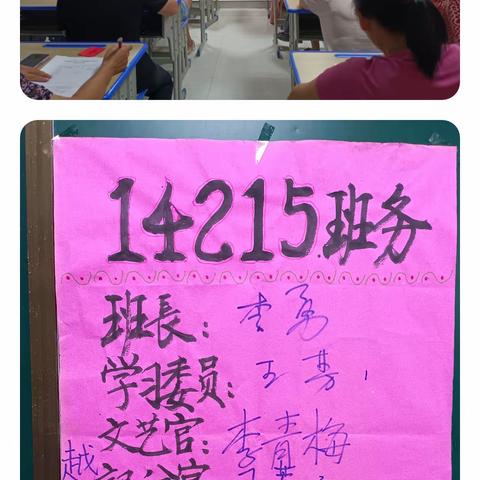 14215班务
班長：李勇
学习委员：王芳
文艺官：李青梅
越